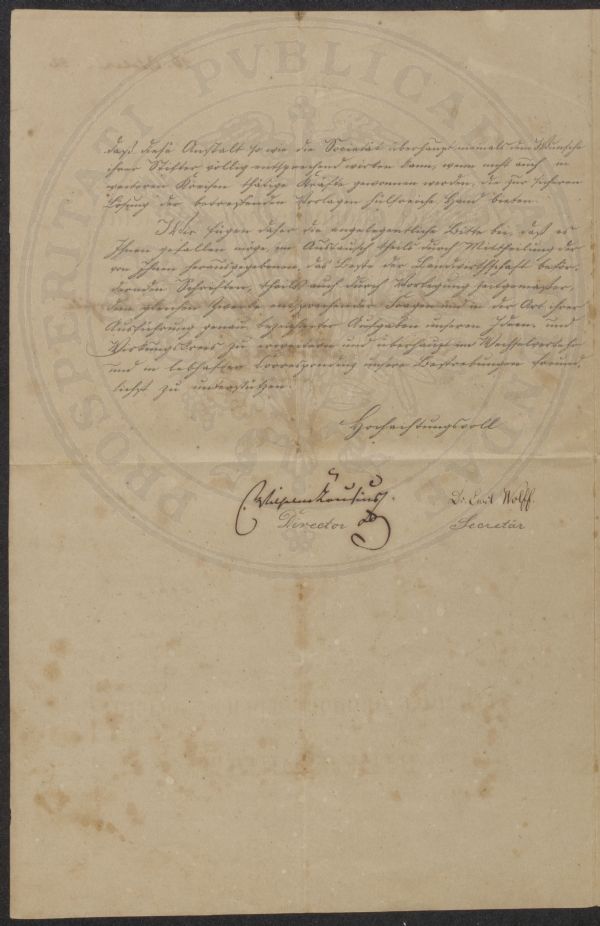 PROSPERITATI PVBLICAE
daß diese Anstalt so wie die Societät überhaupt niemals dem Wunsche
ihrer Stifter völlig entsprechend wirken kann, wenn nicht auch in
weiteren Kreisen thätige Kräfte gewonnen werden, die zur sicheren
Lösung der betreffenden Vorlagen hülfreiche Hand bieten.
Wir fügen daher die angelegentliche Bitte bei, daß es
Ihnen gefallen möge, im Austausch theils durch Mittheilung der
von Ihnen herausgegebenen, das Beste der Landwirthschaft beför-
dernden Schriften, theils auch durch Vorlegung zeitgemäßer,
dem gleichen Zwecke entsprechender Fragen und in der Art ihrer
Ausführung genau bezeichneter Aufgaben unseren Ideen- und
Wirkungskreis zu erweitern und überhaupt im Wechselverkehr
und in lebhafter Correspondenz unsere Bestrebungen freund-
lichst zu unterstützen.
Hochachtungsvoll
Director
Dr. Carl Wolff.
Secretär